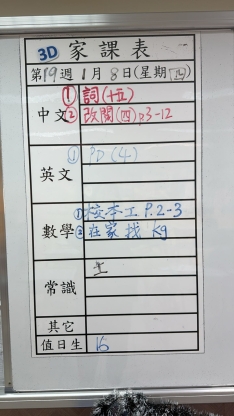 3D 家課表
第19週 1月8日(星期四)
中文
① 詞(十五)
② 改閱(四) P.3-12
英文
① PD(4)
數學
① 按李工 P.2-3
② 在家找 Kg
常識
其它
值日生 16